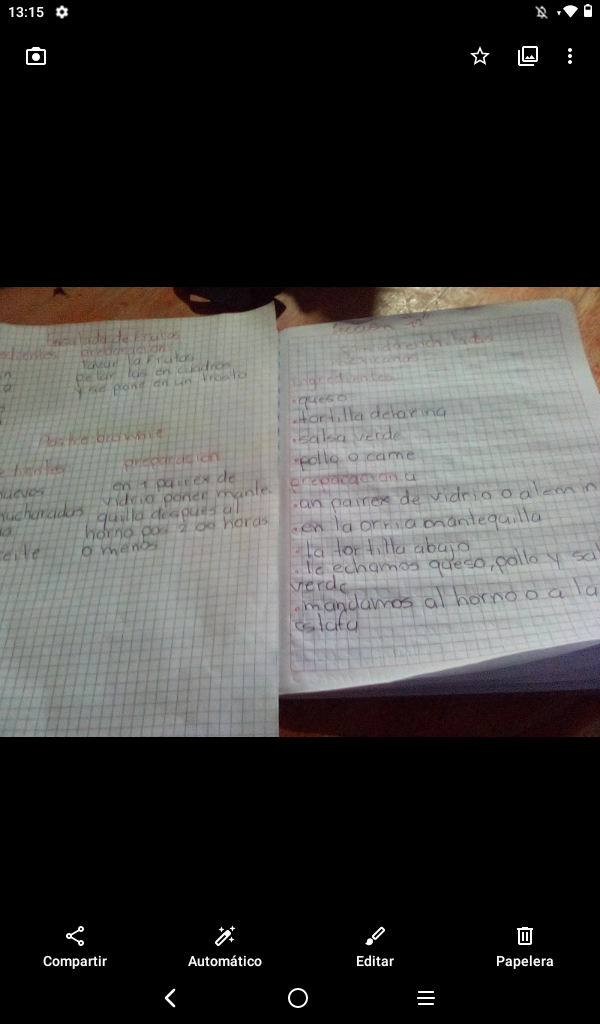 13:15
Ensalada de Frutas
preparacion
lavar la Frutas
pelar las en cuadros
y se pone en un
Postre brownie
preparacion
en 1 pairex de
huevos vidrio poner mante-
cucharadas quilla despues al
horno por 2:00 horas
aceite o menos
enchiladas
mexicanas
ingredientes
.queso
.tortilla de harina
.salsa verde
.pollo o carne
preparacion
.an pairex de vidrio o alemin
.en la orria mantequilla
.la tortilla abajo
.le echamos queso, pollo y sal
verde
.mandamos al horno o a la
estufa
Compartir
Automático
Editar
Papelera